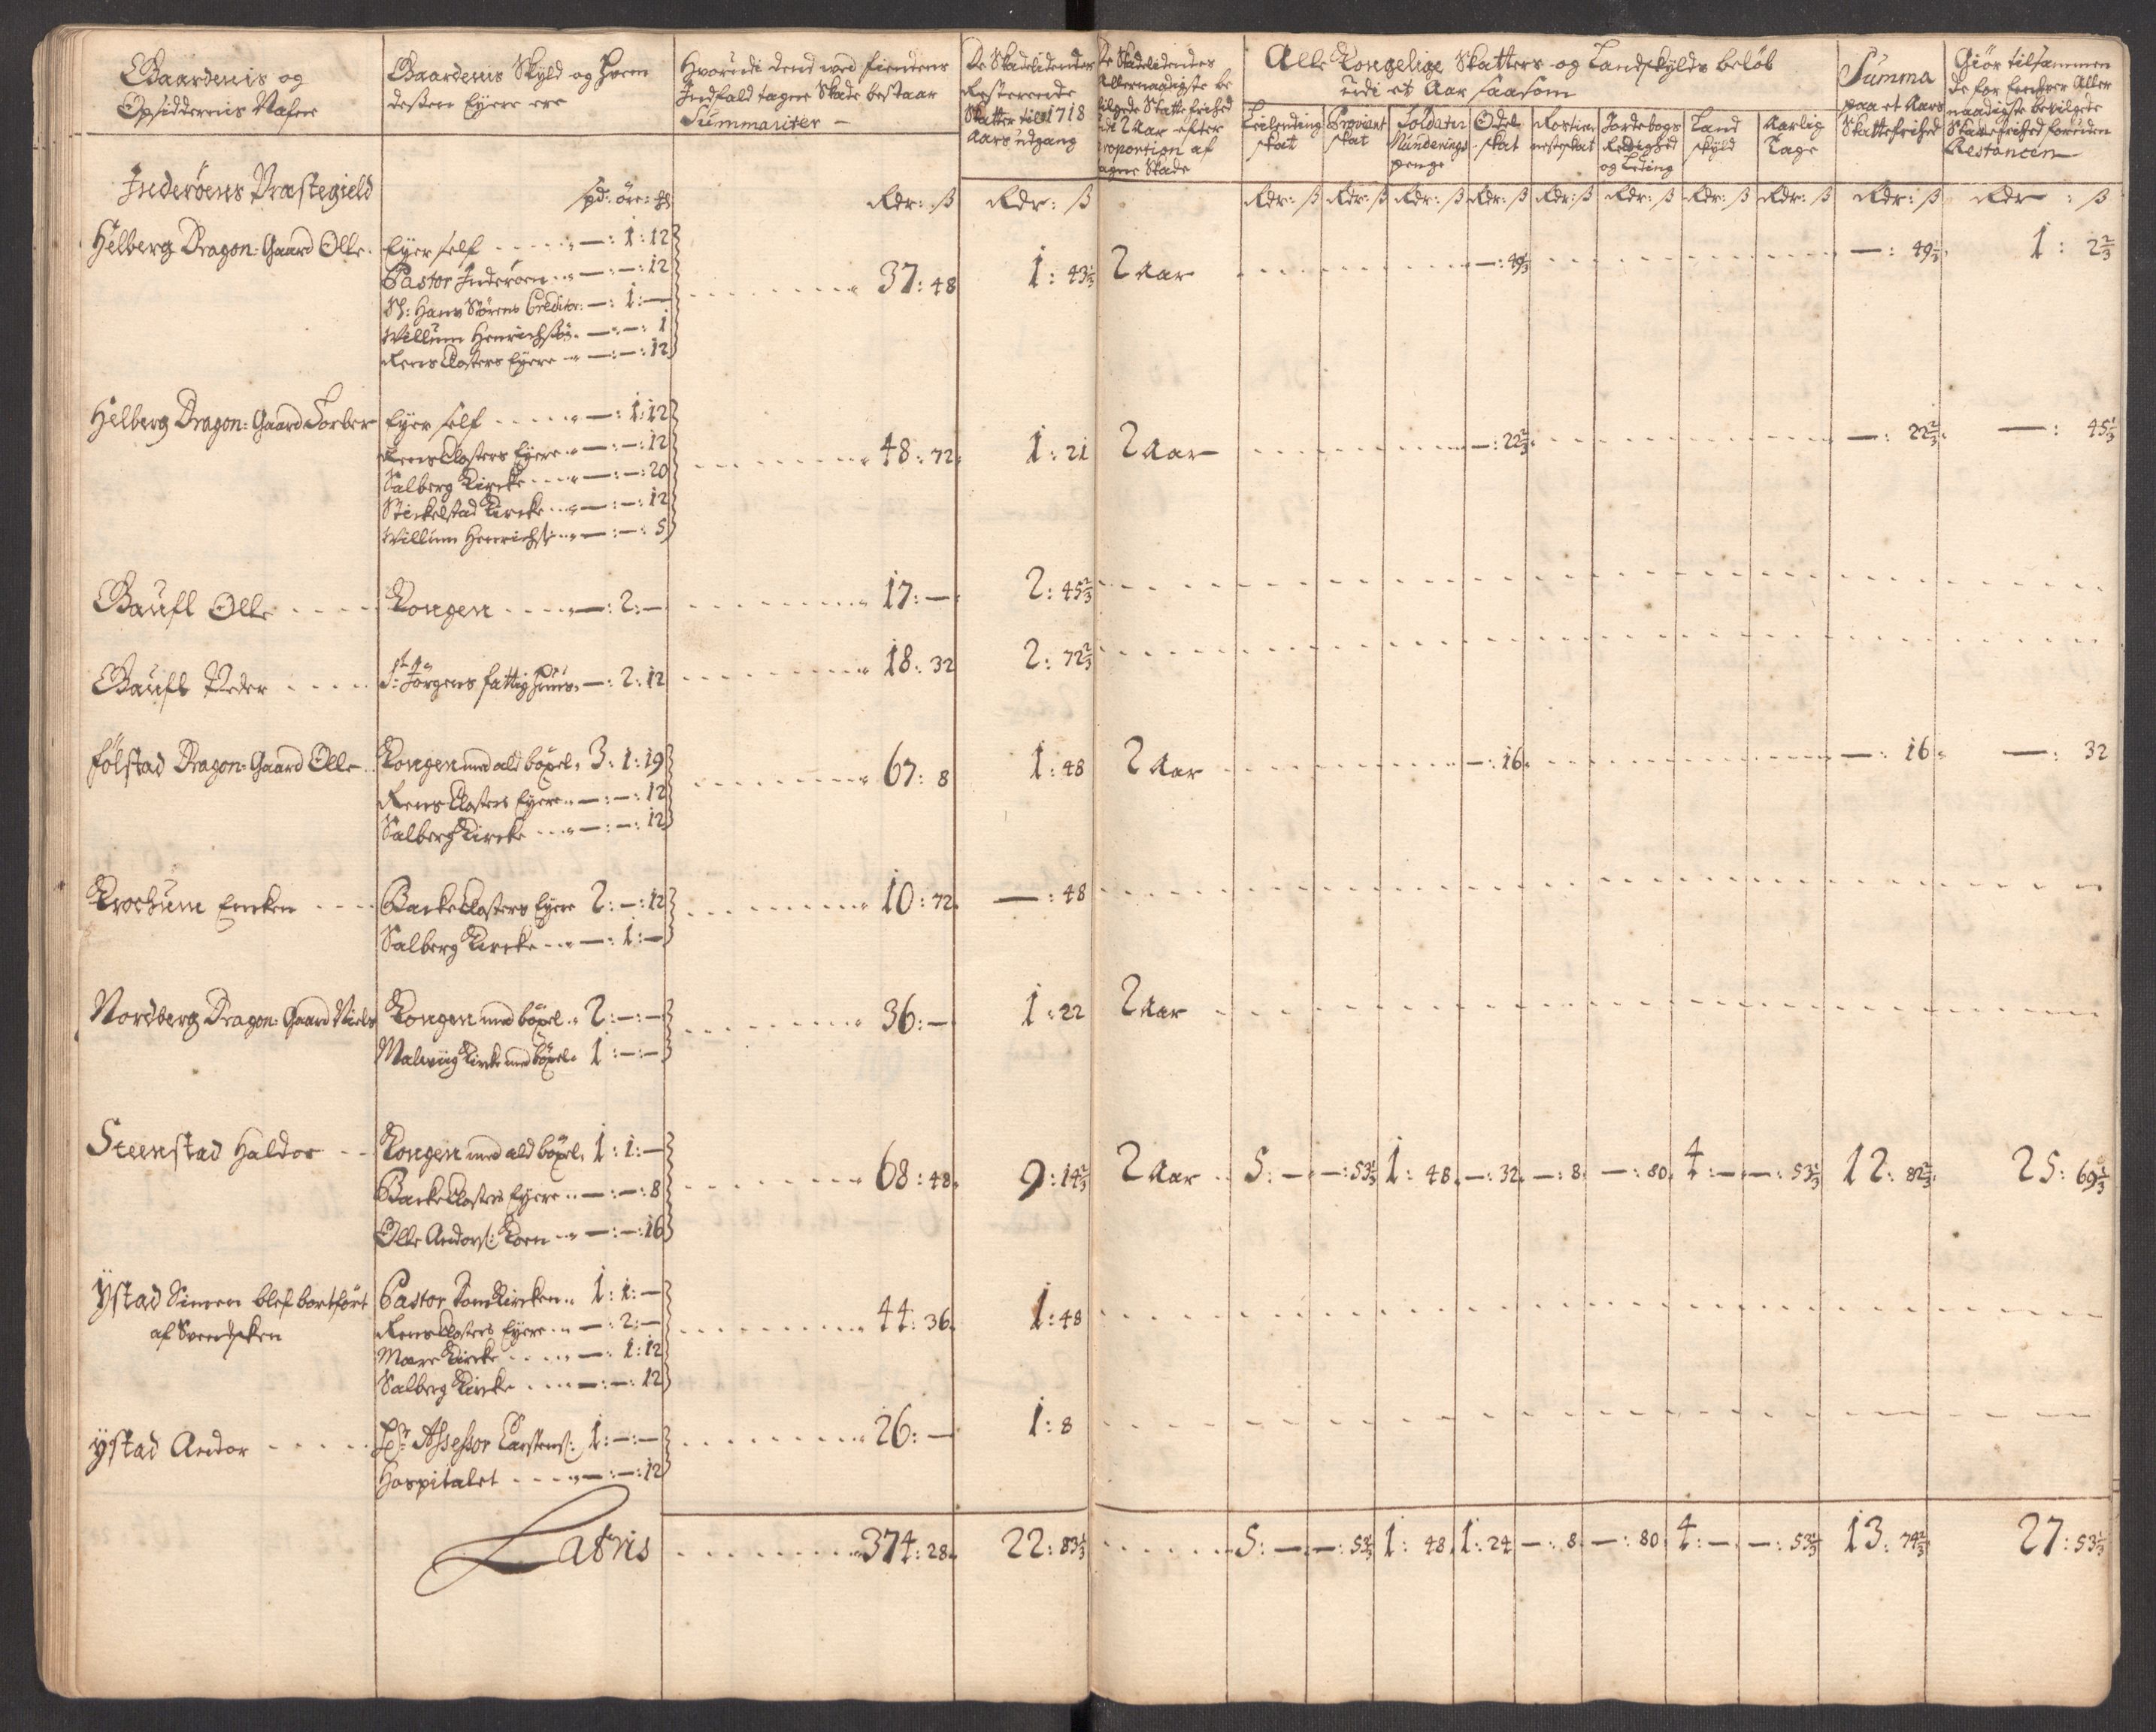 Gaardenis og
Opsiddernis Nafne
Gaardenis Skyld og hvem
desen Eyere ere
Hvorudi dend ved fiendens
Indfald tagne Skade bestaar
Summariter –
De Skadelidendes
Resterende
Skatter til 1718
Aars udgang
De Skadelidendes
Allernaadigste be
vilgede Skatte frihed
udi 2 Aar efter
proportion af
tagne Skade
Alle Kongelige Skatters og Landskylds beløb
udi et Aar saasom
Leilending
skat
Proviant
skat
Soldater
Munderings
penge
Odel
skat
Rostien
nesteskat
Jordebogs
Redighed
og Leding
Land
skyld
Aarlig
Tage
Summa
paa et Aars
Skattefrihed
Giör tilsammen
De for hver Aller
naadigste bevilgede
Skattefrihed foruden
Restancen
Inderöens Præstegield
spd: öre: ℔
Rdr: ß Rdr: ß Rdr: ß Rdr: ß Rdr: ß Rdr: ß Rdr: ß Rdr: ß Rdr: ß Rdr: ß Rdr: ß Rdr : ß
Helberg Dragon: Gaard Olle. Eyer self ..... —: 1: 12
Pastor Inderöen .. —:—: 12
Sl: Hans Störens Creditor: —: 1:—
Willum Henrichsön. —:—: 1
Rens Closters Eyere .. —:—: 12
37: 48 1: 43⅓ 2 Aar —: 49⅓ —: 49⅓ 1: 2⅔
Helberg Dragon: Gaard Torber Eyer self ..... —: 1: 12
Rens Closters Eyere .. —:—: 12
Salberg Kircke .... —:—: 20
Stickelstad Kircke ... —:—: 12
Willum Henrichs: .. —:—: 5
48: 72 1: 21 2 Aar —: 22⅔ —: 22⅔ —: 45⅓
Gaufl Olle .... Kongen .... —: 2:— 17:— 2: 45⅔
Gaufl Peder .... St: Jörgens fattig Huus. —: 2: 12 18: 32 2: 72⅔
Fölstad Dragon: Gaard Olle.. Kongen med ald böxel. 3: 1: 19
Rens Closters Eyere .. —:—: 12
Salberg Kircke ... —:—: 12
67: 8 1: 48 2 Aar —: 16 —: 16 —: 32
Krochum Encken .... Backe Closters Eyere 2:—: 12
Salberg Kircke ... —: 1:—
10: 72 —: 48
Nordberg Dragon: Gaard Niels Kongen med böxel .. 2:—:—
Malvüg Kircke med böxel. 1:—:—
36:— 1: 22 2 Aar
Steenstad Haldor .. Kongen med ald böxel. 1: 1:—
Backe Closters Eyere .. —:—: 8
Olle Andors: Koen .. —:—: 16
68: 48 9: 14⅔ 2 Aar .. 5:— —: 53⅓ 1: 48 —: 32 —: 8 —: 80 4:— —: 53⅓ 12: 82⅔ 25: 69⅓
Ÿstad Simen blef bortfört
af Svendsken
Pastor Tomkircken .. 1: 1:—
Rens Closters Eyere .. —: 2:—
Mære Kircke ..... —: 1: 12
Salberg Kircke .... —:—: 12
44: 36 1: 48
Ÿstad Andor ..... Hr: Assessor Carstens: 1:—:—
Hospitalet .... —:—: 12
26:— 1: 8
Latris 374: 28 22: 83⅓ 5:— —: 53⅓ 1: 48 1: 24 —: 8 —: 80 4:— —: 53⅓ 13: 74⅔ 27: 53⅓